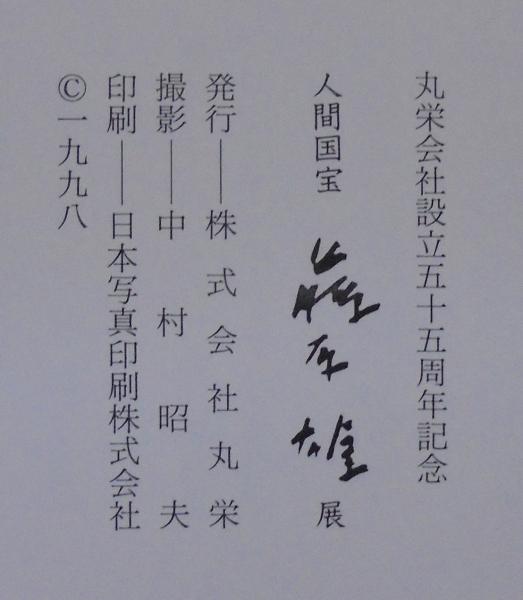 丸栄会社設立五十五周年記念
人間国宝 藤原雄 展
発行――株式会社丸栄
撮影――中村昭夫
印刷――日本写真印刷株式会社
©一九九八